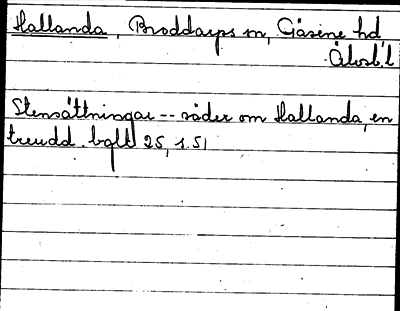 Hallanda, Broddarps sn, Gäsene hd
Älvsb.l
Stensättningar -- söder om Hallanda, en
treudd. bglt 25, 1.51